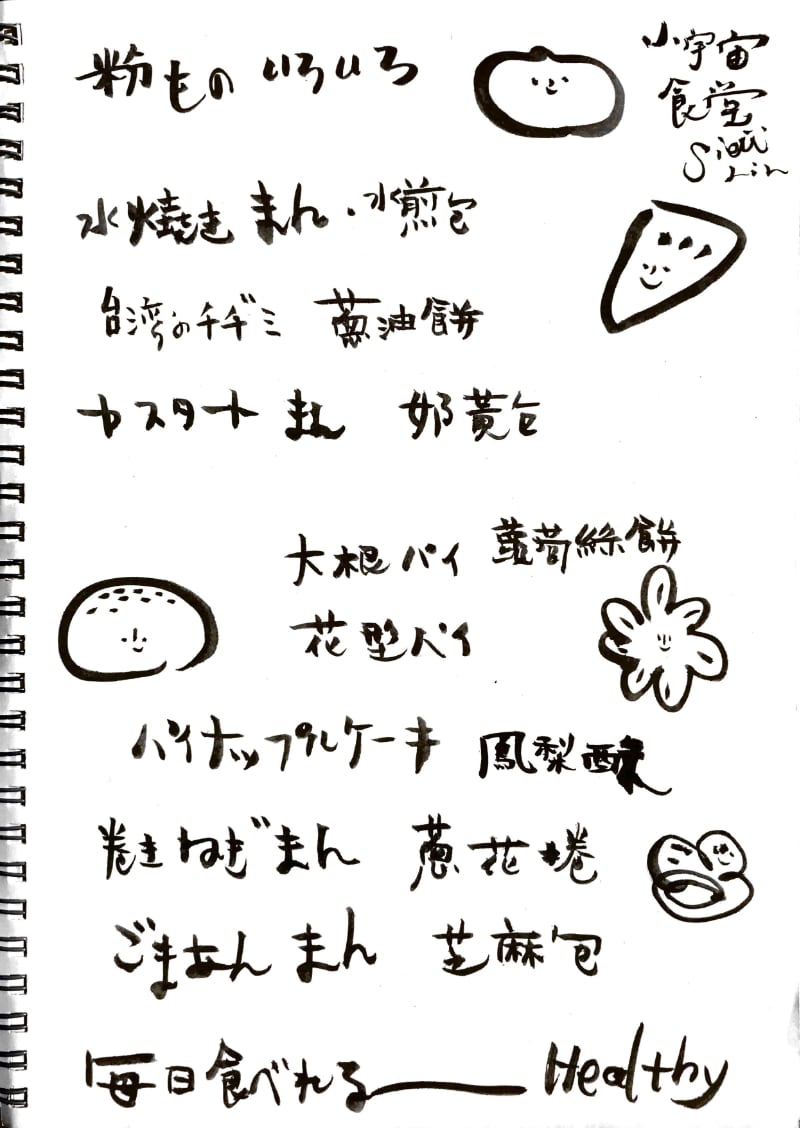 粉もの いろいろ
小宇宙
食堂
Lin
水焼き まん・水煎包
台湾のチヂミ 蔥油餅
カスタード まん 奶黃包
大根パイ 蘿蔔絲餅
花型パイ
パイナップルケーキ 鳳梨酥
巻きねぎまん 蔥花捲
ごまあん まん 芝麻包
毎日食べれる—— Healthy